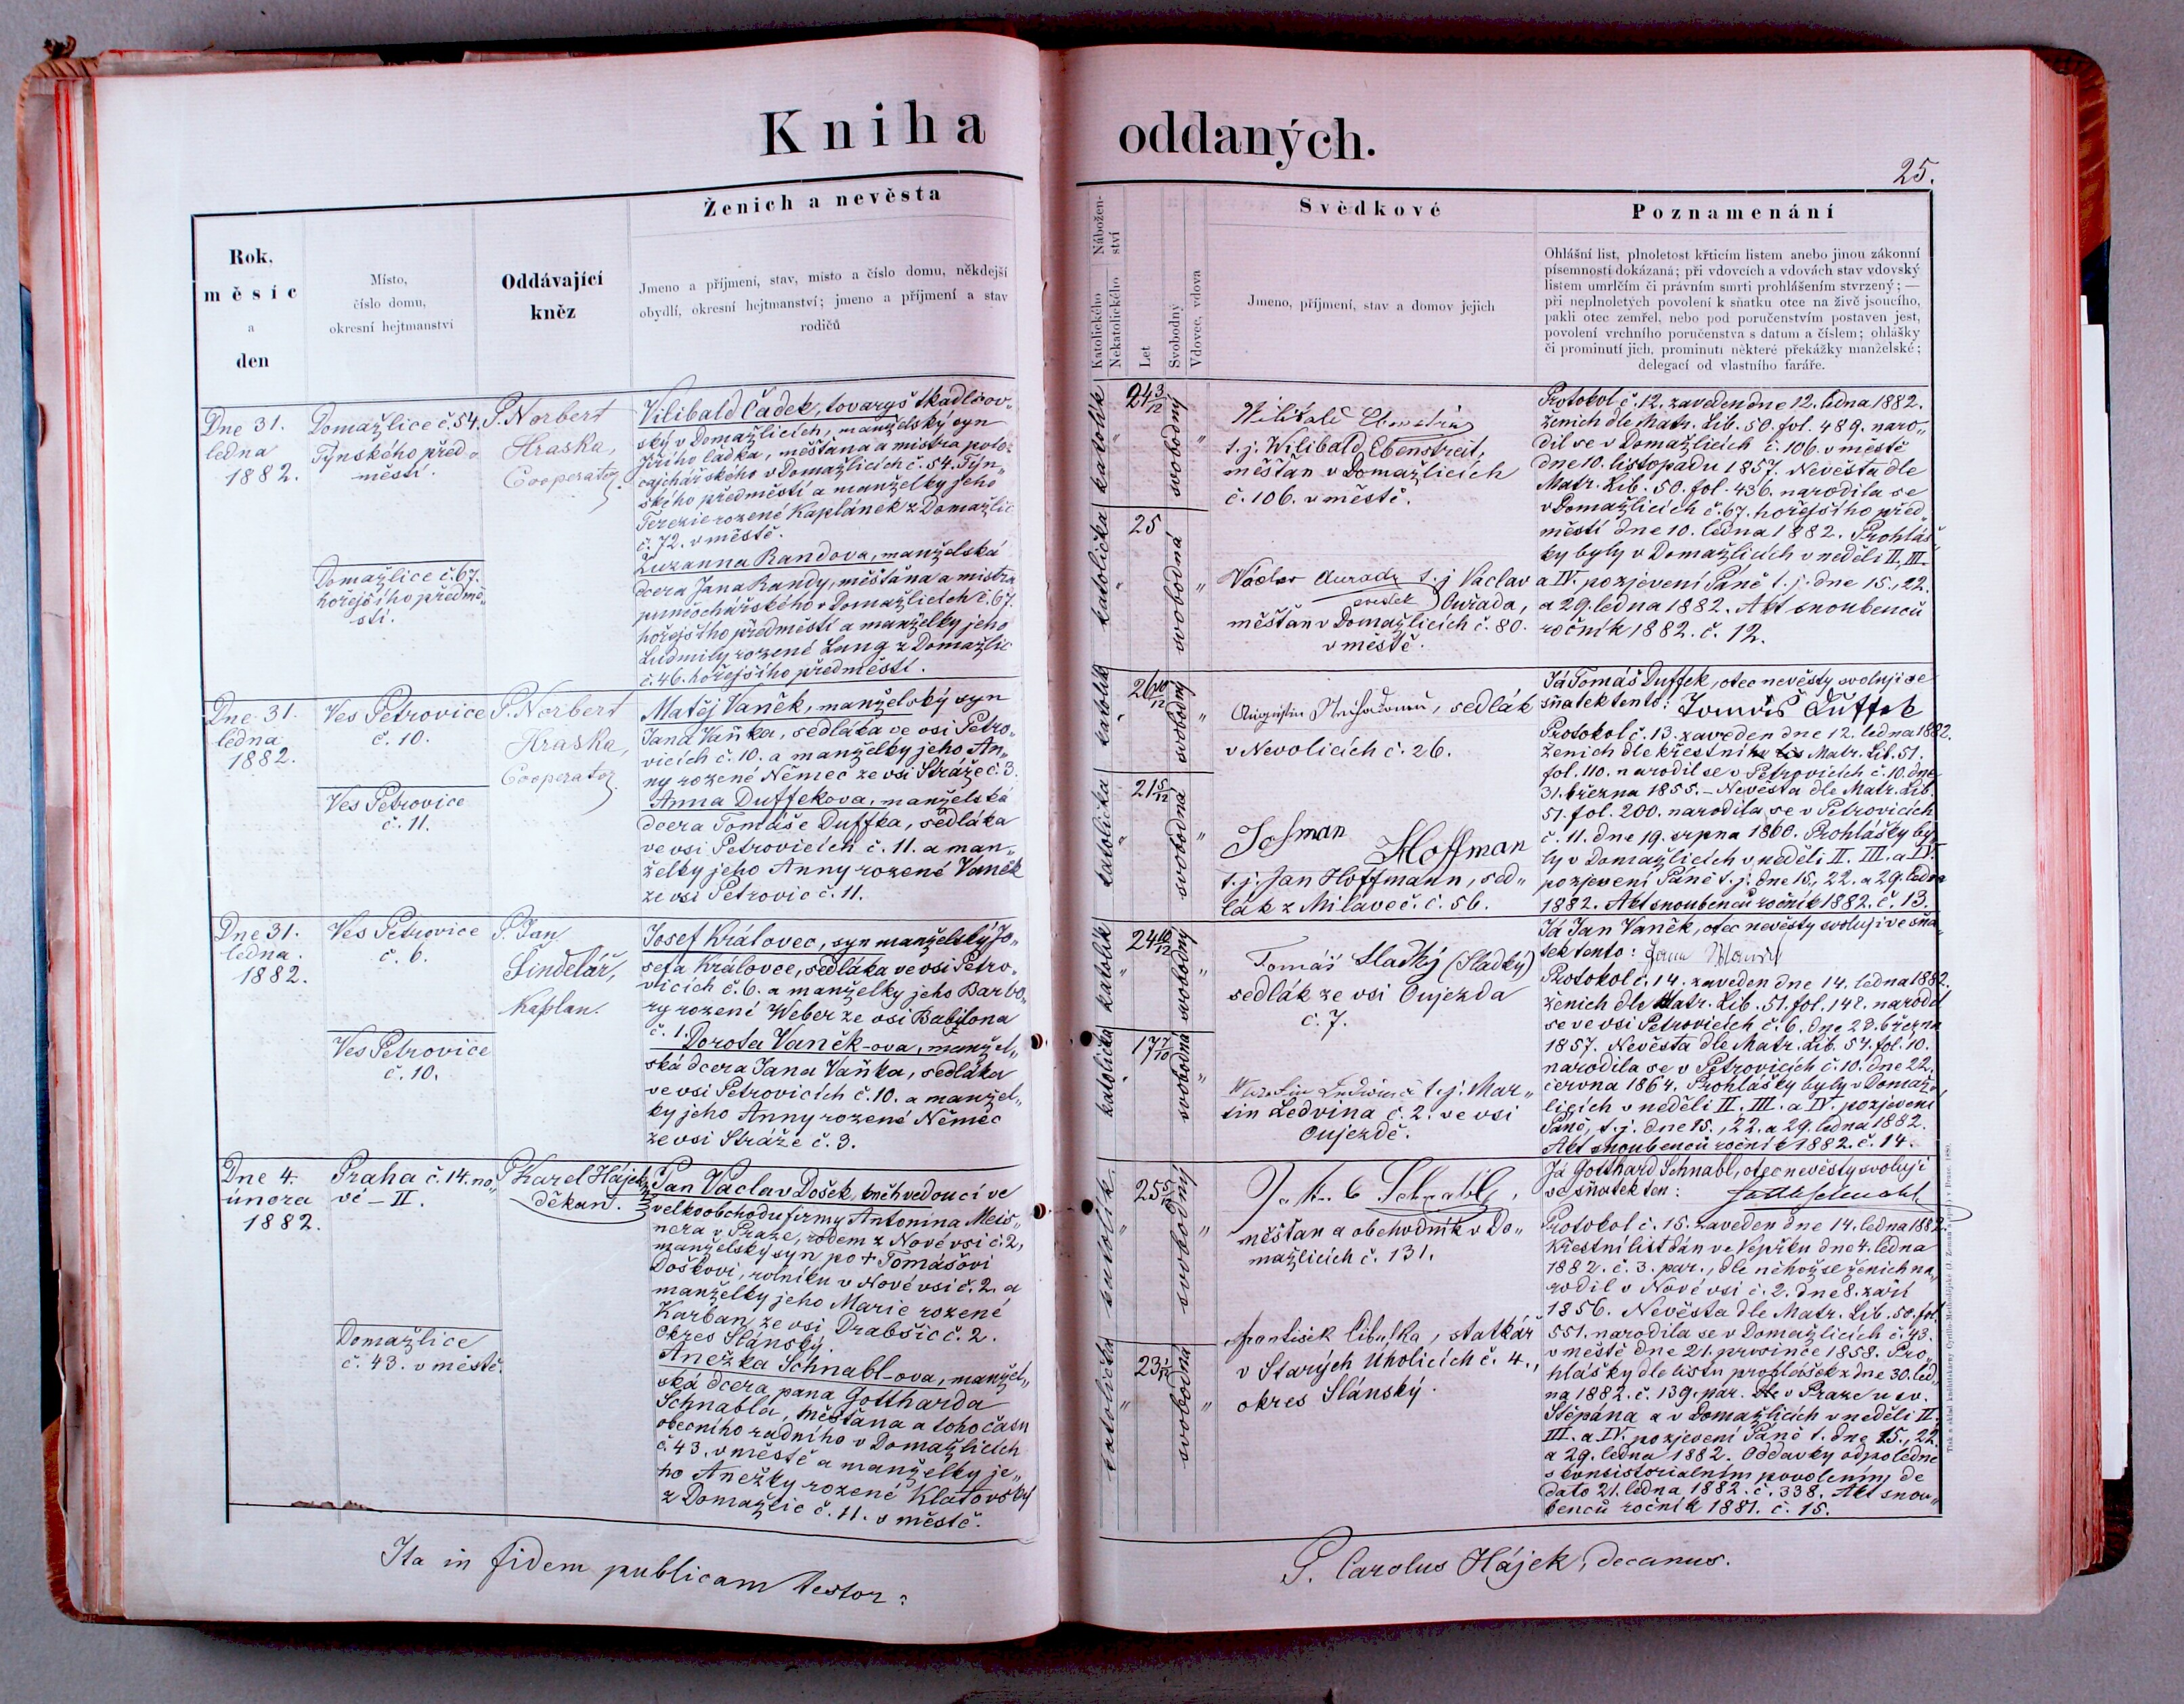 Kniha oddaných.
25.
Rok,
měsíc
a
den
Místo,
číslo domu,
okresní hejtmanství
Oddávající
kněz
Ženich a nevěsta
Jmeno a příjmení, stav, místo a číslo domu, někdejší
obydlí, okresní hejtmanství; jmeno a příjmení a stav
rodičů
Nábožen-
ství
Katolického
Nekatolického
Let
Svobodný
Vdovec, vdova
Svědkové
Jmeno, příjmení, stav a domov jejich
Poznamenání
Ohlášní list, plnoletost křticím listem anebo jinou zákonní
písemností dokázaná; při vdovcích a vdovách stav vdovský
listem umrlčím či právním smrti prohlášením stvrzený; —
při neplnoletých povolení k sňatku otce na živě jsoucího,
pakli otec zemřel, nebo pod poručenstvím postaven jest,
povolení vrchního poručenstva s datum a číslem; ohlášky
či prominutí jich, prominutí některé překážky manželské;
delegací od vlastního faráře.
Dne 31.
ledna
1882.
Domažlice č. 54.
Týnského před„
městí.
Domažlice č. 67.
hořejšího předmě„
stí.
P. Norbert
Hraska,
Cooperator.
Vilibald Čadek, tovaryš tkadlcov„
ský v Domažlicích, manželský syn
Jiřího Čadka, měšťana a mistra poto„
cajchářského v Domažlicích č. 54. Týn„
ského předměstí a manželky jeho
Terezie rozené Kaplánek z Domažlic
č. 72. v městě.
Zuzanna Randova, manželská
dcera Jana Randy, měšťana a mistra
punčochářského v Domažlicích č. 67.
hořejšího předměstí a manželky jeho
Ludmily rozené Lang z Domažlic
č. 46. hořejšího předměstí.
katolík
24 3/12
svobodný
katolička
25
svobodná
t. j. Wilibald Ebenstreit,
měšťan v Domažlicích
č. 106. v městě.
Václav Aurada t. j. Václav
Auřada,
měšťan v Domažlicích č. 80.
v městě.
Protokol č. 12. zaveden dne 12. ledna 1882.
Ženich dle Matr. Lib. 50. fol. 489. naro„
dil se v Domažlicích č. 106. v městě
dne 10. listopadu 1857. Nevěsta dle
Matr. Lib. 50. fol. 436. narodila se
v Domažlicích č. 67. hořejšího před„
městí dne 10. ledna 1882. Prohláš„
ky byly v Domažlicích v neděli II, III.
a IV. po zjevení Páně t. j. dne 15., 22.
a 29. ledna 1882. Akt snoubenců
ročník 1882. č. 12.
Dne 31.
ledna
1882.
Ves Petrovice
č. 10.
Ves Petrovice
č. 11.
P. Norbert
Hraska,
Cooperator.
Matěj Vaněk, manželský syn
Jana Vaňka, sedláka ve vsi Petro„
vicích č. 10. a manželky jeho An„
ny rozené Němec ze vsi Stráže č. 3.
Anna Duffekova, manželská
dcera Tomáše Duffka, sedláka
ve vsi Petrovicích č. 11. a man„
želky jeho Anny rozené Vaněk
ze vsi Petrovic č. 11.
katolík
26 10/12
svobodný
katolička
21 5/12
svobodná
sedlák
v Nevolicích č. 26.
Hoffman
t. j. Jan Hoffmann, sed„
lák z Milaveč č. 56.
Já Tomáš Duffek, otec nevěsty svoluji ve
sňatek tento: Tomáš Duffek
Protokol č. 13. zaveden dne 12. ledna 1882.
Ženich dle Matr. Lib. 51.
fol. 110. narodil se v Petrovicích č. 10. dne
31. března 1855. – Nevěsta dle Matr. Lib.
51. fol. 200. narodila se v Petrovicích
č. 11. dne 19. srpna 1860. Prohlášky by„
ly v Domažlicích v neděli II. III. a IV.
po zjevení Páně t. j. dne 15., 22. a 29. ledna
1882. Akt snoubenců ročník 1882. č. 13.
Dne 31.
ledna.
1882.
Ves Petrovice
č. 6.
Ves Petrovice
č. 10.
P. Jan
Šindelář,
Kaplan.
Josef Královec, syn manželský Jo„
sefa Královce, sedláka ve vsi Petro„
vicích č. 6. a manželky jeho Barbo„
ry rozené Weber ze vsi Babilona
č. 1. Dorota Vaněk-ova, manžel„
ská dcera Jana Vaňka, sedláka
ve vsi Petrovicích č. 10. a manžel„
ky jeho Anny rozené Němec
ze vsi Stráže č. 3.
katolík
24 10/12
svobodný
katolička
17 7/10
svobodná
Tomáš Sladký (Sladký)
sedlák ze vsi Oujezda
č. 7.
t. j. Mar„
tin Ledvina č. 2. ve vsi
Oujezdě.
Já Jan Vaněk, otec nevěsty svoluji ve sňa„
tek tento:
Protokol č. 14. zaveden dne 14. ledna 1882.
ženich dle Matr. Lib. 51. fol. 148. narodil
se ve vsi Petrovicích č. 6. dne 28. března
1857. Nevěsta dle Matr. Lib. 54. fol. 10.
narodila se v Petrovicích č. 10. dne 22.
června 1864. Prohlášky byly v Domaž„
licích v neděli II. III. a IV. po zjevení
Páně, t. j. dne 15., 22. a 29. ledna 1882.
Akt snoubenců ročník 1882. č. 14.
Dne 4.
února
1882.
Praha č. 14. no„
vé – II.
Domažlice
č. 43. v městě.
P. Karel Hájek,
děkan.
Pan Václav Došek, knihvedoucí ve
velkoobchodu firmy Antonína Meis„
nera v Praze, rodem z Nové vsi č. 2,
manželský syn po + Tomášovi
Doškovi, rolníku v Nové vsi č. 2. a
manželky jeho Marie rozené
Karban ze vsi Drabšic č. 2.
Okres Slánský.
Anežka Schnabl-ova, manžel„
ská dcera pana Gottharda
Schnabla, měšťana a toho času
obecního radního v Domažlicích
č. 43. v městě a manželky je„
ho Anežky rozené Klatovský
z Domažlic č. 11. v městě.
katolík
25 5/12
svobodný
katolička
23 1/12
svobodná
Schnabl,
měšťan a obchodník v Do„
mažlicích č. 131.
František Cibulka, statkář
v Starých Úholicích č. 4.,
okres Slánský.
Já Gotthard Schnabl, otec nevěsty svoluji
ve sňatek ten:
Protokol č. 15. zaveden dne 14. ledna 1882.
Křestní list dán ve Vepřku dne 4. ledna
1882. č. 3. par., dle něhož se ženich na„
rodil v Nové vsi č. 2. dne 8. září
1856. Nevěsta dle Matr. Lib. 50. fol.
551. narodila se v Domažlicích č. 43.
v městě dne 21. prosince 1858. Pro„
hlášky dle listu prohlášek z dne 30. led„
na 1882. č. 139. par. v Praze u sv.
Štěpána a v Domažlicích v neděli II.
III. a IV. po zjevení Páně t. dne 15., 22.
a 29. ledna 1882. Oddavky odpoledne
s konsistorialním povolením de
dato 21. ledna 1882. č. 338. Akt snou„
benců ročník 1881. č. 15.
Ita in fidem publicam testor:
P. Carolus Hájek, decanus.